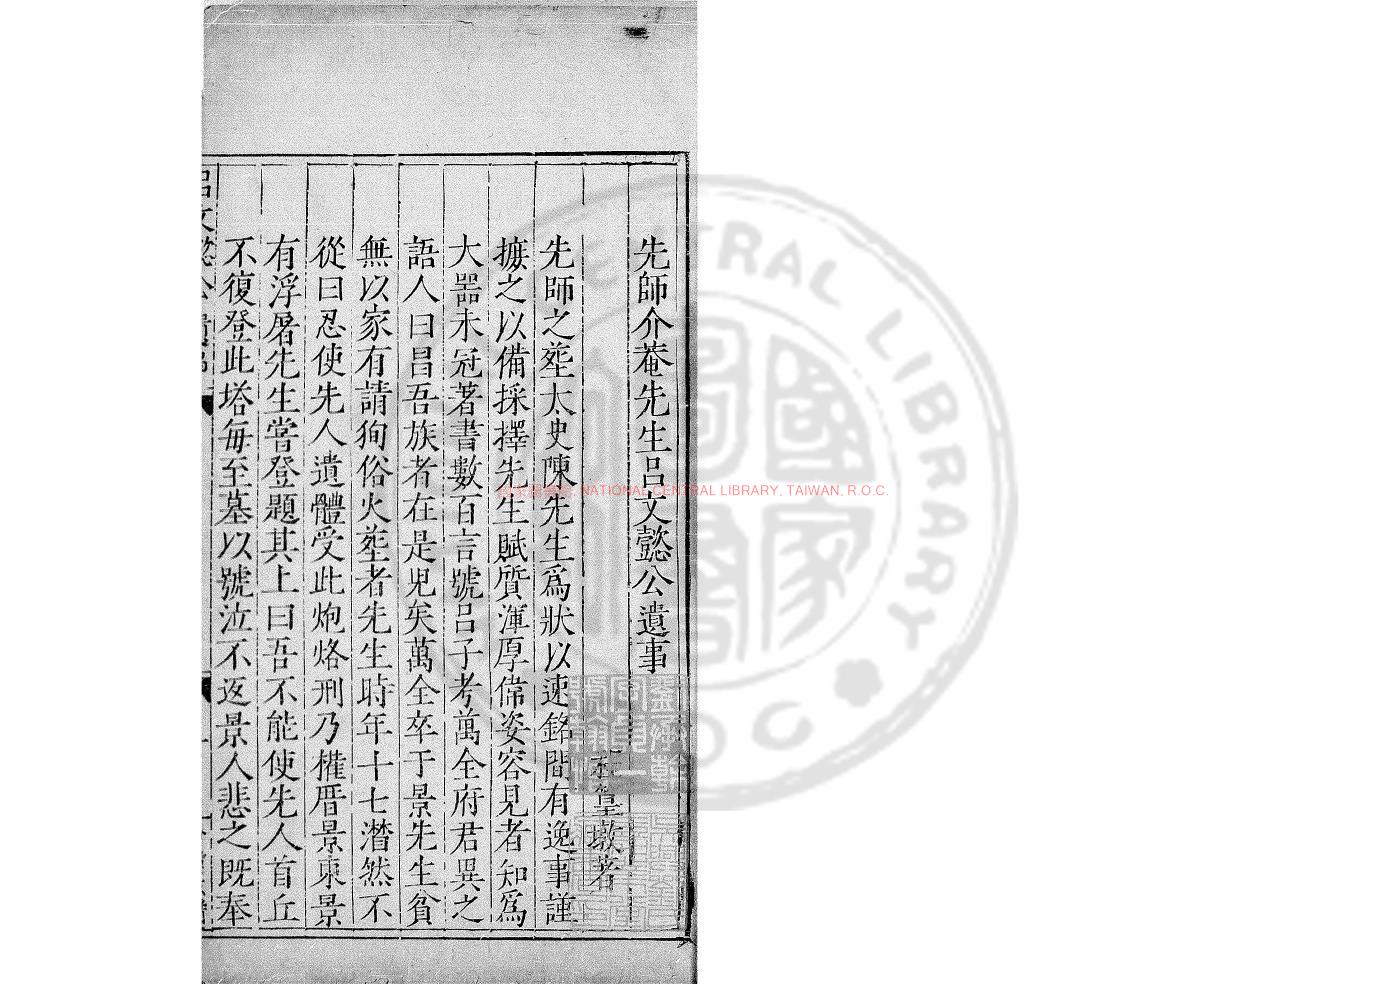 先師介菴先生呂文懿公遺事
程篁墩著
先師之塟太史陳先生爲狀以速銘間有逸事謹
摭之以備採擇先生賦質渾厚偉姿容見者知爲
大噐未冠著書數百言號呂子考萬全府君異之
語人曰昌吾族者在是兒矣萬全卒于景先生貧
無以家有請狥俗火塟者先生時年十七潸然不
從曰忍使先人遺體受此炮烙刑乃權厝景東景
有浮屠先生嘗登題其上曰吾不能使先人首丘
不復登此塔每至墓以號泣不返景人悲之既奉
呂文懿公遺事
國家圖書館, NATIONAL CENTRAL LIBRARY, TAIWAN, R.O.C.
CENTRAL LIBRARY
R O C